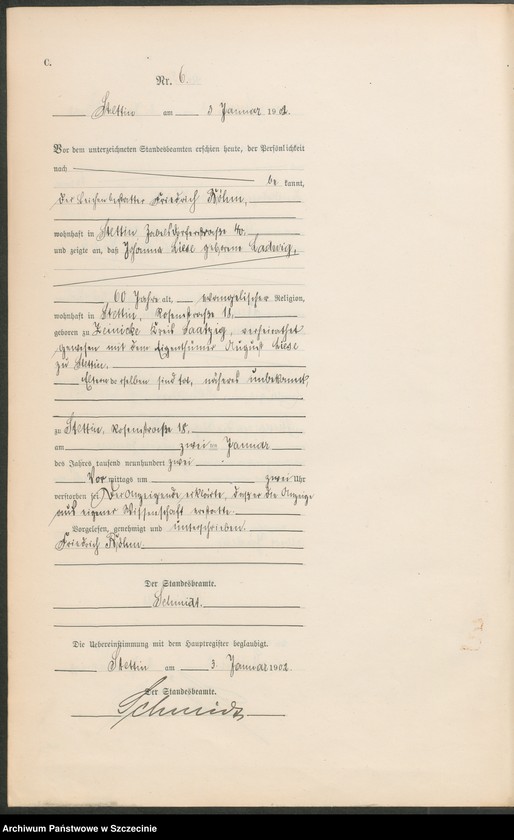 C.
Nr. 6.
Stettin am 3 Januar 1902.
Vor dem unterzeichneten Standesbeamten erschien heute, der Persönlichkeit
nach
be kannt,
der Leichenbestatter Friedrich Böhm,
wohnhaft in Stettin,
und zeigte an, daß Johanna Liese geborene Ladwig,
60 Jahre alt, evangelischer Religion,
wohnhaft in Stettin, Rosenstraße 18.
geboren zu Kreis Saatzig, verheirathet
gewesen mit dem Eigenthümer August Liese
zu Stettin.
Eltern derselben sind tot, näheres unbekannt,
zu Stettin, Rosenstraße 18.
am zwei ten Januar
des Jahres tausend neunhundert zwei
Vor mittags um zwei Uhr
verstorben sei. Der Anzeigende erklärte, daß er die Anzeige
aus eigener Wissenschaft erstatte
Vorgelesen, genehmigt und unterschrieben.
Friedrich Böhm.
Der Standesbeamte.
Schmidt.
Die Uebereinstimmung mit dem Hauptregister beglaubigt.
Stettin am 3. Januar 1902.
Der Standesbeamte.
Schmidt
Archiwum Państwowe w Szczecinie